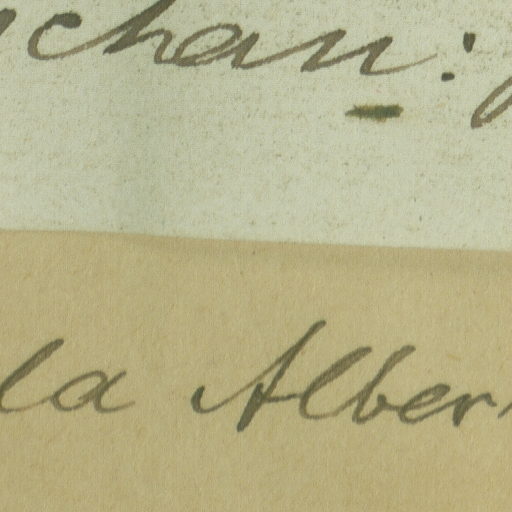 chan:
la Alber